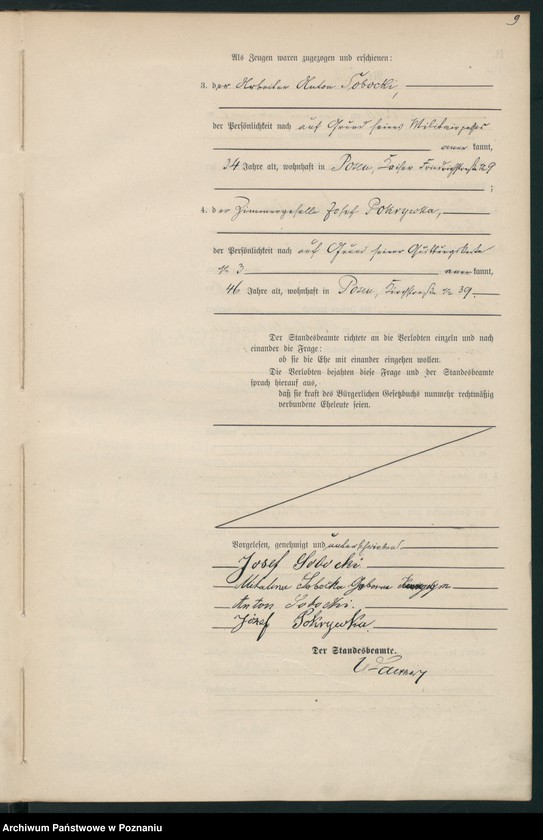 9
Als Zeugen waren zugezogen und erschienen:
3. der Arbeiter Anton Sobocki,
der Persönlichkeit nach auf Grund seines Militairpasses
anerkannt,
34 Jahre alt, wohnhaft in Posen, Kaiser Friedrichstraße 29
;
4. der Zimmergeselle Josef Pokrywka,
der Persönlichkeit nach auf Grund seiner Quittungskarte
№ 3 anerkannt,
46 Jahre alt, wohnhaft in Posen, № 39.
Der Standesbeamte richtete an die Verlobten einzeln und nach
einander die Frage:
ob sie die Ehe mit einander eingehen wollen.
Die Verlobten bejahten diese Frage und der Standesbeamte
sprach hierauf aus,
daß sie kraft des Bürgerlichen Gesetzbuchs nunmehr rechtmäßig
verbundene Eheleute seien.
Vorgelesen, genehmigt und unterschrieben
Josef Sobocki.
Sobocka Geborne
Anton Sobocki.
Józef Pokrywka.
Der Standesbeamte.
Archiwum Państwowe w Poznaniu